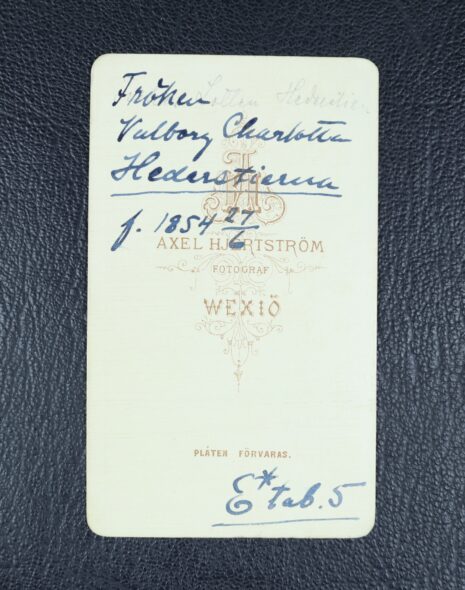 Fröken Lotten Hederstier
Valborg Charlotta
Hederstierna
f. 1854 27/6
AH
AXEL HJERTSTRÖM
FOTOGRAF
WEXIÖ
PLÅTEN FÖRVARAS.
E* tab. 5